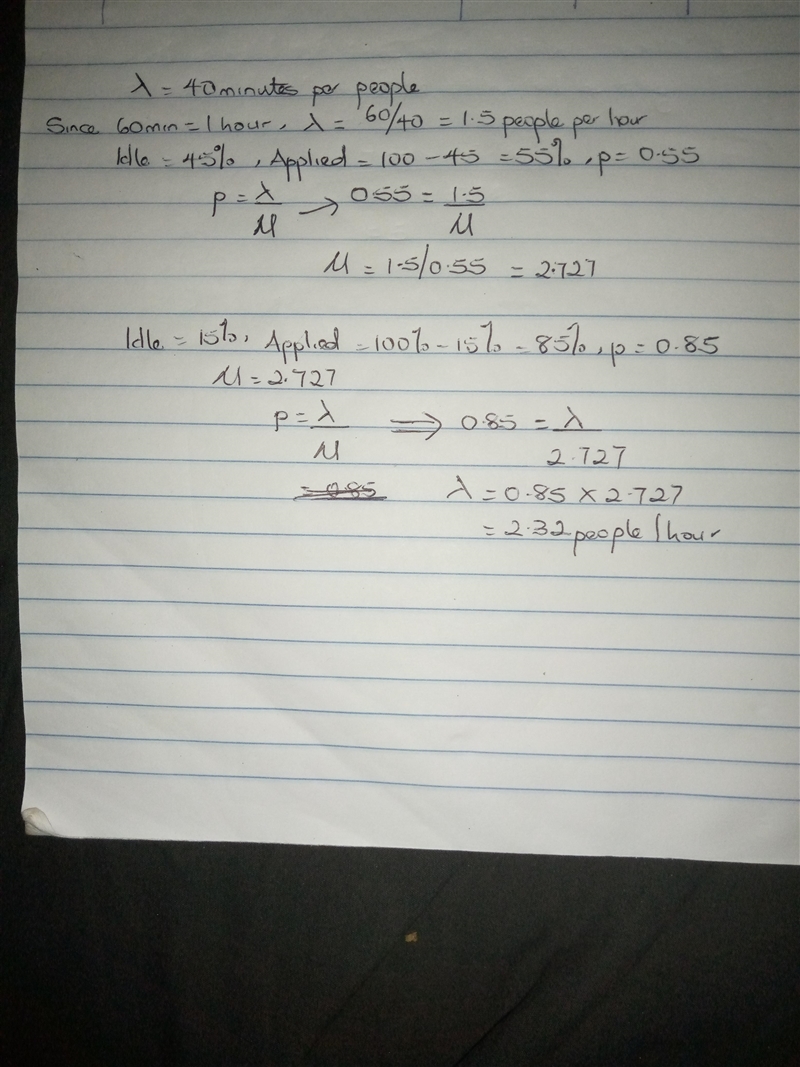 λ = 40minutes per people
Since 60min = 1 hour, λ = 60/40 = 1.5 people per hour
Idle = 45%, Applied = 100 - 45 = 55%, p = 0.55
p = λ/M → 0.55 = 1.5/M
M = 1.5/0.55 = 2.727
Idle = 15%, Applied = 100% - 15% - 85%, p = 0.85
M = 2.727
p = λ/M ⟹ 0.85 = λ/2.727
= 0.85 λ = 0.85 × 2.727
= 2.32 people/hour